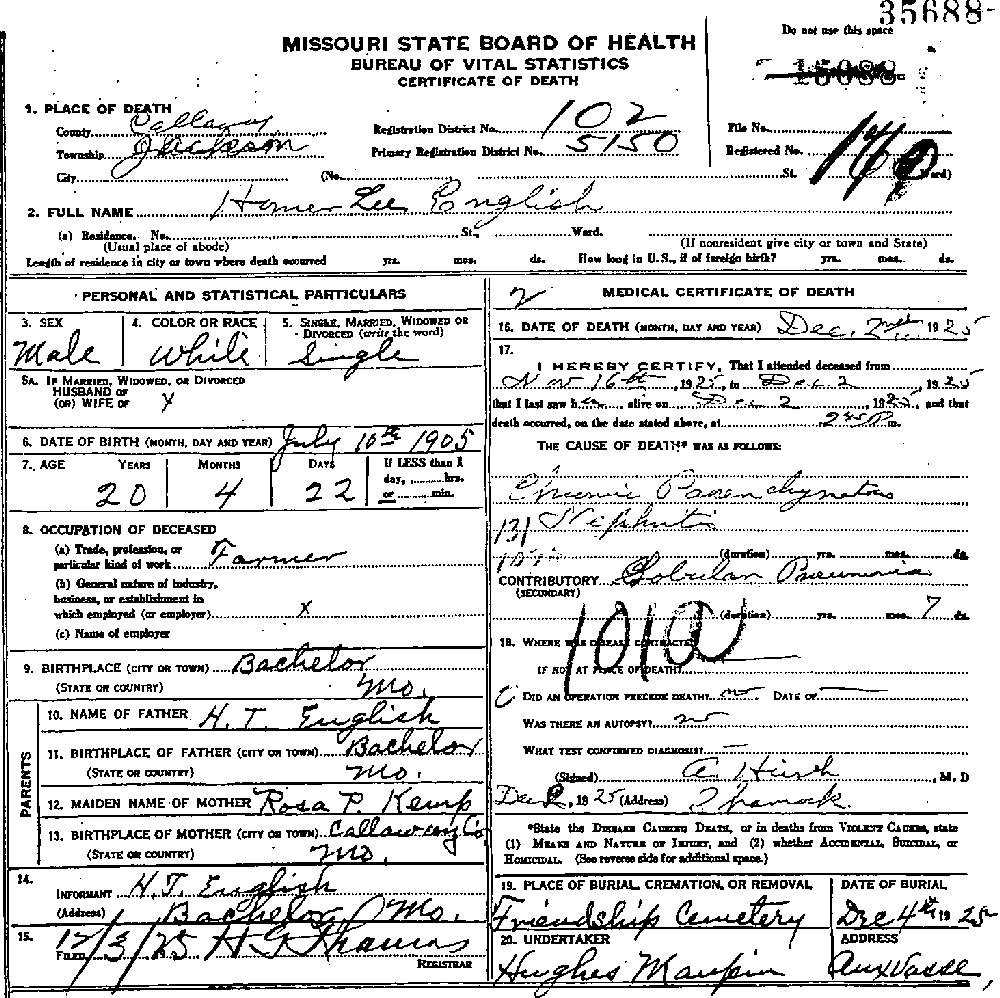 35688-
Do not use this space
MISSOURI STATE BOARD OF HEALTH
BUREAU OF VITAL STATISTICS
CERTIFICATE OF DEATH
15088
1. PLACE OF DEATH
County Callaway Registration District No. 102 File No.
Township Jackson Primary Registration District No. 5150 Registered No.
City (No. St. Ward)
2. FULL NAME Homer Lee English
(a) Residence. No. St., Ward.
(Usual place of abode) (If nonresident give city or town and State)
Length of residence in city or town where death occurred yrs. mos. ds. How long in U.S., if of foreign birth? yrs. mos. ds.
PERSONAL AND STATISTICAL PARTICULARS
3. SEX 4. COLOR OR RACE 5. SINGLE, MARRIED, WIDOWED OR
DIVORCED (write the word)
Male White Single
5A. IF MARRIED, WIDOWED, OR DIVORCED
HUSBAND OF
(OR) WIFE OF X
6. DATE OF BIRTH (MONTH, DAY AND YEAR) July 10th 1905
7. AGE YEARS MONTHS DAYS If LESS than 1
day, hrs.
or min.
20 4 22
8. OCCUPATION OF DECEASED
(a) Trade, profession, or
particular kind of work Farmer
(b) General nature of industry,
business, or establishment in
which employed (or employer) X
(c) Name of employer
9. BIRTHPLACE (CITY OR TOWN) Bachelor
(STATE OR COUNTRY) Mo.
PARENTS
10. NAME OF FATHER H. T. English
11. BIRTHPLACE OF FATHER (CITY OR TOWN) Bachelor
(STATE OR COUNTRY) Mo.
12. MAIDEN NAME OF MOTHER Rosa P. Kemp
13. BIRTHPLACE OF MOTHER (CITY OR TOWN) Callaway Co
(STATE OR COUNTRY) Mo.
14. INFORMANT H. T. English
(Address) Bachelor Mo.
15. FILED 12/3/25 H G Thomas
REGISTRAR
2 MEDICAL CERTIFICATE OF DEATH
16. DATE OF DEATH (MONTH, DAY AND YEAR) Dec. 2nd 1925
17.
I HEREBY CERTIFY, That I attended deceased from
Nov 16th, 1925, to Dec 2, 1925
that I last saw h alive on Dec 2, 1925, and that
death occurred, on the date stated above, at m.
THE CAUSE OF DEATH* WAS AS FOLLOWS:
Chronic Parenchymatous
131 Nephritis
(duration) yrs. mos. ds.
CONTRIBUTORY Lobular Pneumonia
(SECONDARY)
(duration) yrs. mos. 7 ds.
101a
18. WHERE WAS DISEASE CONTRACTED
IF NOT AT PLACE OF DEATH?
DID AN OPERATION PRECEDE DEATH? no DATE OF
WAS THERE AN AUTOPSY? no
WHAT TEST CONFIRMED DIAGNOSIS? —
(Signed) A. Hirsh, M. D
Dec 2, 1925 (Address)
*State the DISEASE CAUSING DEATH, or in deaths from VIOLENT CAUSES, state
(1) MEANS AND NATURE OF INJURY, and (2) whether ACCIDENTAL, SUICIDAL, or
HOMICIDAL. (See reverse side for additional space.)
19. PLACE OF BURIAL, CREMATION, OR REMOVAL DATE OF BURIAL
Friendship Cemetery Dec 4th 1925
20. UNDERTAKER ADDRESS
Hughes Maupin Auxvasse,